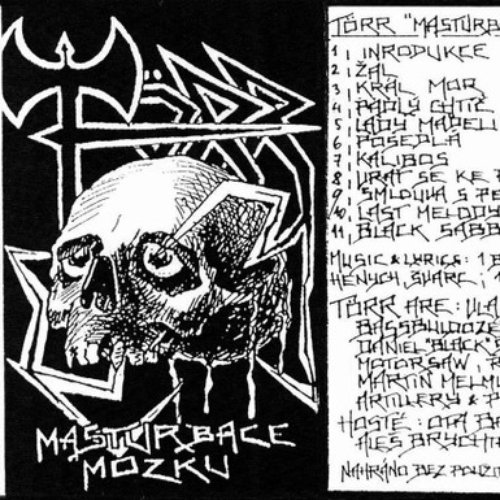 TÖRR
MASTURBACE
MOZKU
TÖRR "MASTURB
1, INRODUKCE
2, ŽAL
3, KRÁL MOR
4, PADLÝ CHTÍČ
5, LADY MADELI
6, POSEDLÁ
7, KALIBOS
8, VRAŤ SE KE
9, SMLOUVA S
10, LAST MELODY
11, BLACK SABB
MUSIC & LYRICS: 1
HENYCH, ŠVARC,
TÖRR ARE: VLA
BASSBULDOZE
DANIEL "BLACK"
MOTORSAW,
MARTIN MELMU
ARTILLERY &
HOSTÉ: OTA BA
ALEŠ BRYCHT
NAHRÁNO BEZ POUŽIT